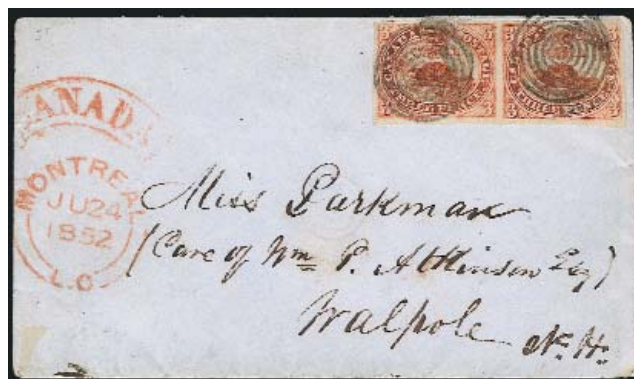 CANADA POSTAGE
CANADA
MONTREAL
JU 24
1852
L.C
Miss Parkman
(Care of Wm P. Atkinson Esq)
Walpole N. H.